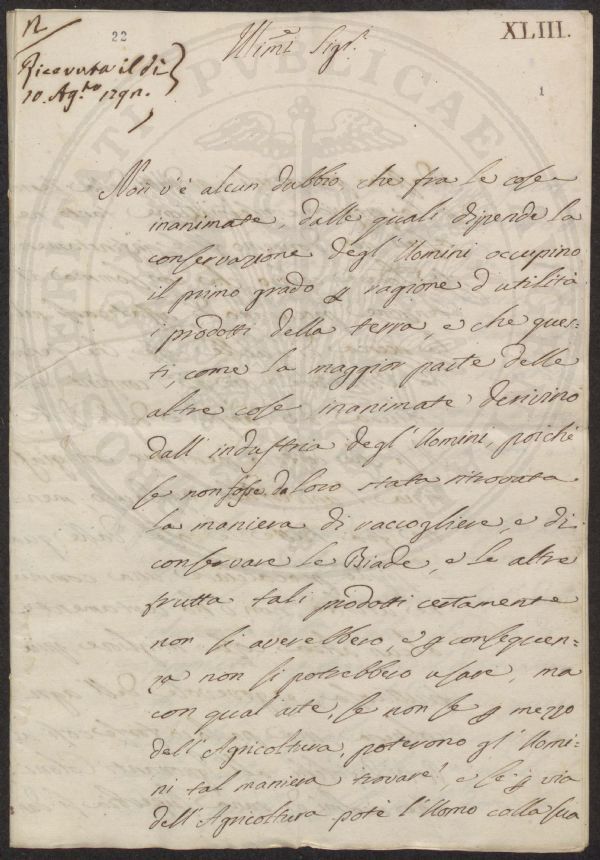 N
22
Ricevuta il dì
10. Ag.to 179
Illmi Sigri
XLIII.
1
PUBLICAE
Non v'è alcun dubbio, che fra le cose
inanimate, dalle quali dipende la
conservazione degl'Uomini occupino
il primo grado p ragione d'utilità
i prodotti della terra, e che ques=
ti, come la maggior parte delle
altre cose inanimate derivino
dall'industria degl'Uomini, poichè
se non fosse da loro stata ritrovata
la maniera di raccogliere, e di
conservare le Biade, e le altre
frutta tali prodotti certamente
non si averebbero, e p conseguen=
za non si potrebbero usare, ma
con qual'arte, se non se p mezzo
dell'Agricoltura, poterono gl'Uomi=
ni tal maniera trovare, e se p via
dell'Agricoltura potè l'Uomo colla sua